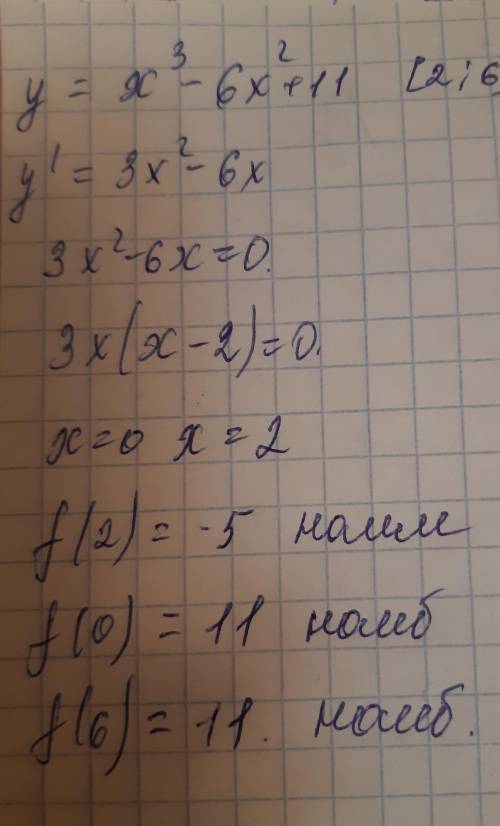 y = x³ - 6x² + 11 [2; 6
y' = 3x² - 6x
3x² - 6x = 0.
3x(x - 2) = 0.
x = 0 x = 2
f(2) = -5 наим
f(0) = 11 наиб
f(6) = 11. наиб.